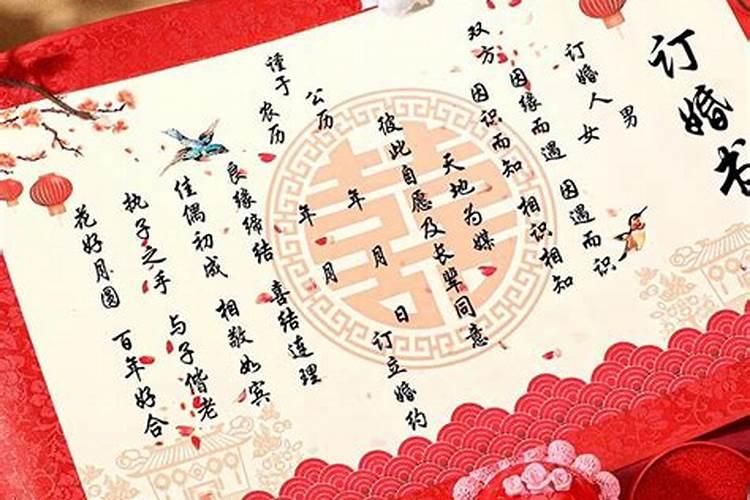 订婚书
男
订婚人女
双方
因缘而遇 因遇而识
因识而知 相识相知
天地为媒
彼此自愿及长辈同意
谨于
公历 年 月 日
农历 年 月
订立婚约
良缘缔结 喜结连理
佳偶初成 相敬如宾
执子之手 与子偕老
花好月圆 百年好合